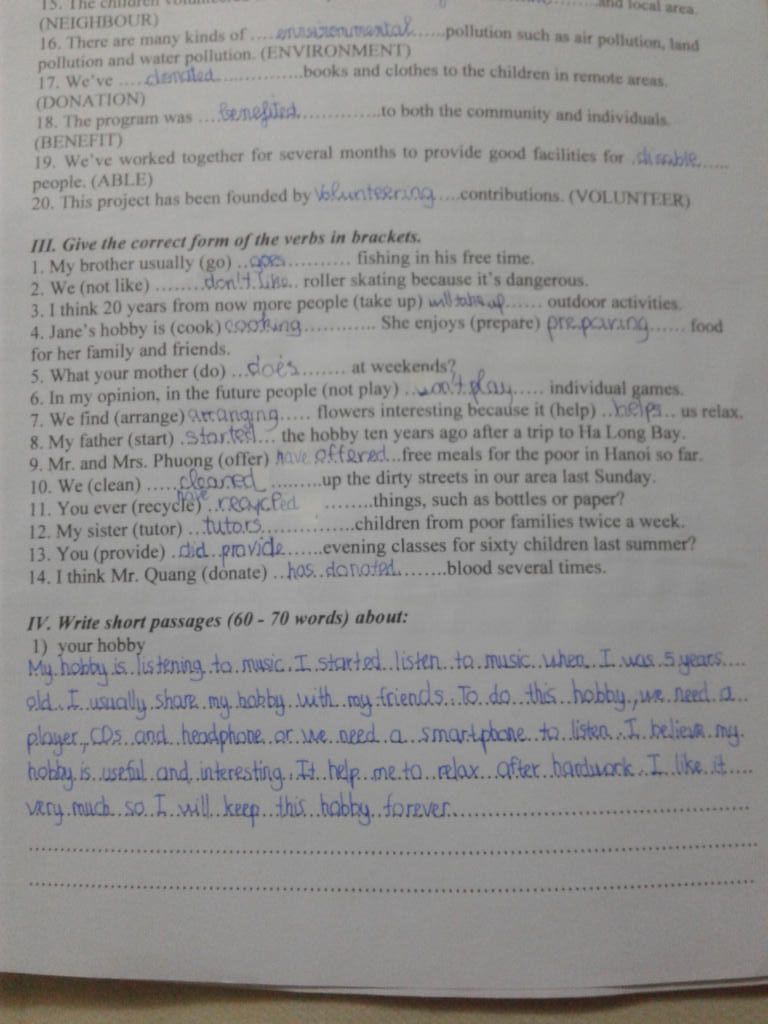 15. The children volunteered and local area.
(NEIGHBOUR)
16. There are many kinds of ....environmental......pollution such as air pollution, land
pollution and water pollution. (ENVIRONMENT)
17. We've ....donated................books and clothes to the children in remote areas.
(DONATION)
18. The program was ....benefited...............to both the community and individuals.
(BENEFIT)
19. We've worked together for several months to provide good facilities for .disable.....
people. (ABLE)
20. This project has been founded by volunteering....contributions. (VOLUNTEER)
III. Give the correct form of the verbs in brackets.
1. My brother usually (go) ..goes........... fishing in his free time.
2. We (not like) ........don't like.. roller skating because it's dangerous.
3. I think 20 years from now more people (take up) will take up...... outdoor activities.
4. Jane's hobby is (cook) cooking............ She enjoys (prepare) preparing...... food
for her family and friends.
5. What your mother (do) ...does........ at weekends?
6. In my opinion, in the future people (not play) ..won't play..... individual games.
7. We find (arrange) arranging..... flowers interesting because it (help) ..helps... us relax.
8. My father (start) .started... the hobby ten years ago after a trip to Ha Long Bay.
9. Mr. and Mrs. Phuong (offer) have offered...free meals for the poor in Hanoi so far.
10. We (clean) .....cleaned .........up the dirty streets in our area last Sunday.
11. You ever (recycle) ..have recycled ........things, such as bottles or paper?
12. My sister (tutor) ...tutors................children from poor families twice a week.
13. You (provide) .did provide.......evening classes for sixty children last summer?
14. I think Mr. Quang (donate) ..has donated........blood several times.
IV. Write short passages (60 - 70 words) about:
1) your hobby
My hobby is listening to music. I started listen to music when I was 5 years....
old. I usually share my hobby with my friends. To do this hobby, we need a...
player, CDs and headphone or we need a smartphone to listen. I believe my
hobby is useful and interesting. It help me to relax after hardwork. I like it....
very much so I will keep this hobby forever.